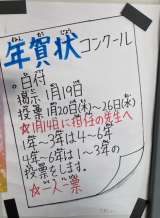 ねん が じょう
年賀状コンクール
○日付
掲示 1月19日
投票 1月20日(木)〜26日(水)
☆1月14日に担任の先生へ
1年〜3年は4〜6年
4年〜6年は1〜3年の
投票をします。
☆一人一票